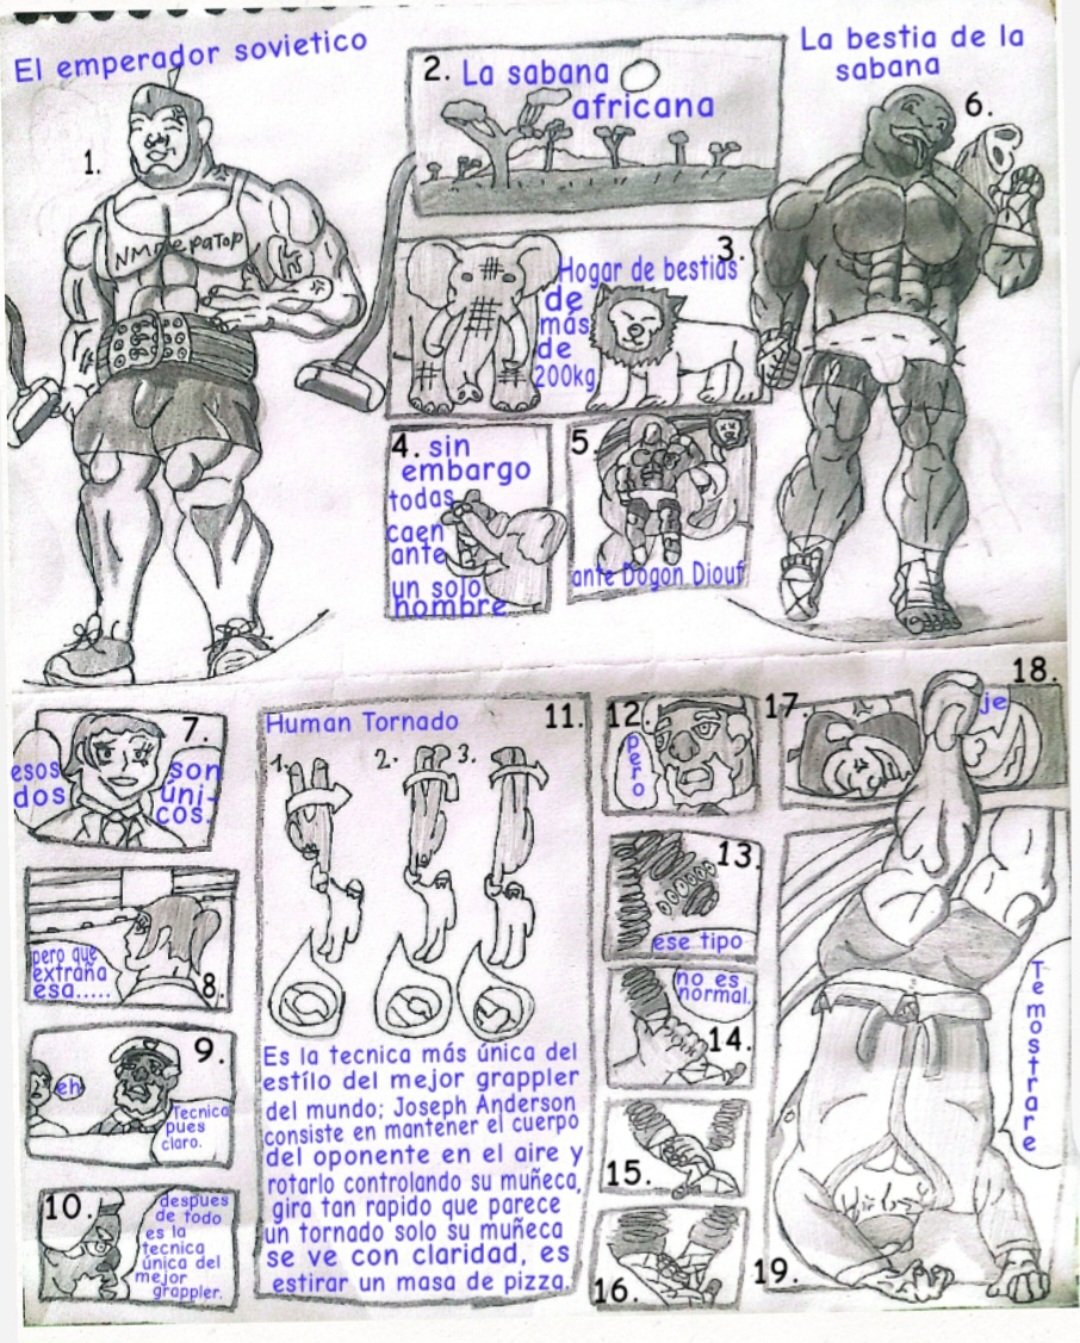 El emperador sovietico
1.
ИМПератоР
2. La sabana
africana
3.
Hogar de bestias
de
más
de
200kg
4. sin
embargo
todas
caen
ante
un solo
hombre
5.
ante Dogon Diouf
La bestia de la
sabana
6.
7.
esos
dos
son
úni-
cos.
pero que
extraña
esa.....
8.
9.
eh
Tecnica
pues
claro.
10.
despues
de todo
es la
tecnica
única del
mejor
grappler.
Human Tornado
11.
1.
2.
3.
Es la tecnica más única del
estílo del mejor grappler
del mundo; Joseph Anderson
consiste en mantener el cuerpo
del oponente en el aire y
rotarlo controlando su muñeca,
gira tan rapido que parece
un tornado solo su muñeca
se ve con claridad, es
estirar un masa de pizza.
12.
pero
13.
ese tipo
no es
normal.
14.
15.
16.
17.
18.
je
Te mostrare
19.